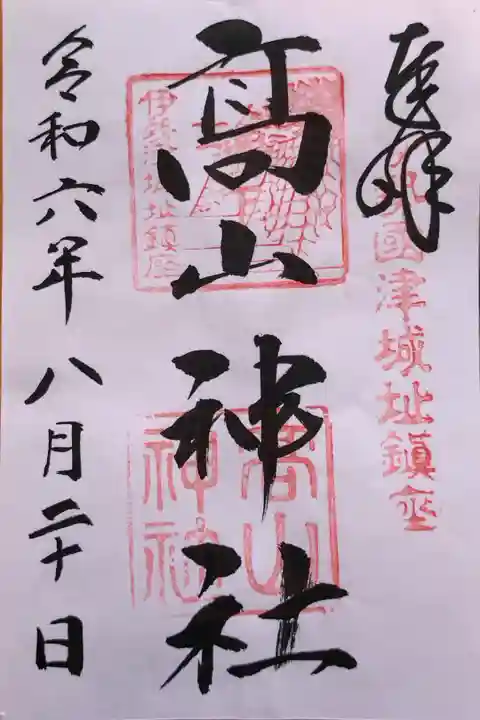 奉拝
國津城址鎮座
髙山神社
城址鎮座
高山
神社
令和六年八月二十日